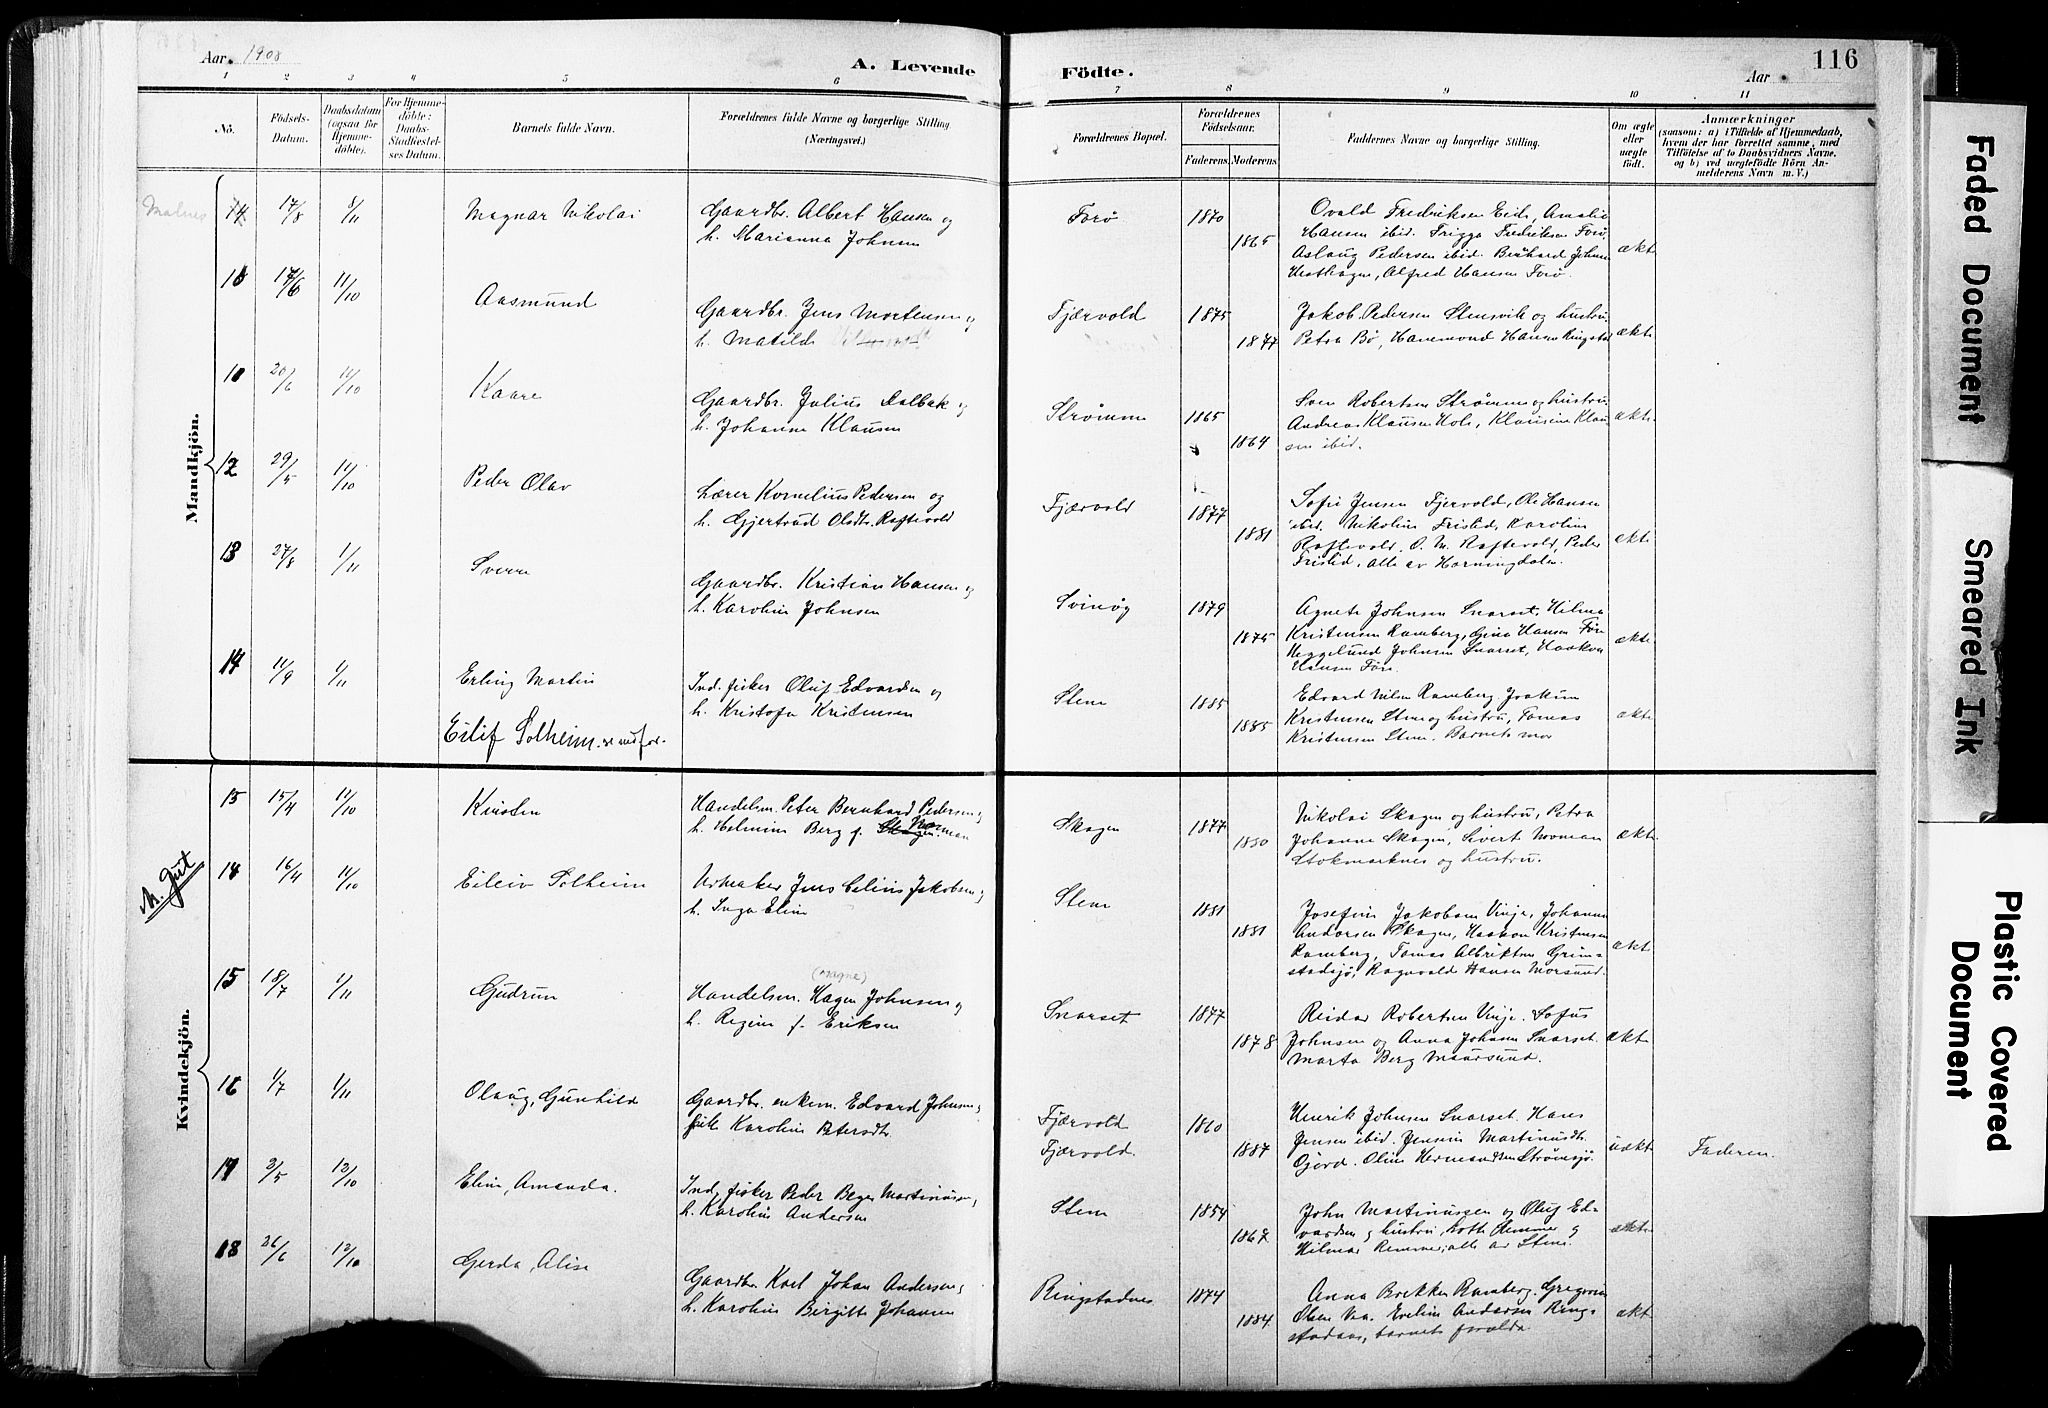 Aar. 1908
A. Levende
Födte.
Aar
116
1 2 3 4 5 6 7 8 9 10 11
Nö.
Födsels-
Datum.
Daabsdatum
(ogsaa for
Hjemme-
döbte).
For Hjemme-
döbte:
Daabs-
Stadfæstel-
ses Datum.
Barnets fulde Navn.
Forældrenes fulde Navne og borgerlige Stilling
(Næringsvei.)
Forældrenes Bopæl.
Forældrenes
Födselsaar.
Faderens. Moderens.
Faddernes Navne og borgerlige Stilling.
Om ægte
eller
uægte
födt.
Anmærkninger
(saasom: a) i Tilfælde af Hjemmedaab,
hvem der har forrettet samme, med
Tilföielse af to Daabsvidners Navne.
og b) ved uægtefödte Börn An-
melderens Navn m. V.)
Mandkjön.
Malnes
17/8 1/11 Magnar Nikolai
Gaardbr. Albert Hansen og
h. Marianna Johnsen
Forø 1870 1865
Ovald Fredriksen Eide, Amalie
Hansen ibid. Frigga Fredriksen Forø,
Aslaug Pedersen ibid. Bernhard Johnsen
Alfred Hansen Forø.
ekte
11/10 Aasmund
Gaardbr. Jens Mortensen og
h. Matilde
Fjærvold 1875 1877
Jakob Pedersen Stensvik og hustru,
Petra Bø, Hansen Ringstad
ekte
20/6 11/10 Kaare
Gaardbr. Julius Dalbak og
h. Johanna Klausen
Strømme 1865 1864
Sven Robertsen Strømme og hustru,
Andreas Klausen Hols, Klausine Klau-
sen ibid.
ekte
12 29/5 11/10 Peder Olav
Lærer Kornelius Pedersen og
h. Gjertrud Olsdtr. Raftevold
Fjærvold 1877 1881
Sofie Jensen Fjervold, Ole Hansen
ibid. Nikoline Fristid, Karoline
Raftevold. O. M. Raftevold, Peder
Fristid, alle av Horningdalen.
ekte
13 27/8 1/11 Sverre
Gaardbr. Kristian Hansen og
h. Karoline Johnsen
Svinøy 1879 1875
Agnete Johnsen Snarset, Hilma
Kristensen Ramberg, Gina Hansen Føre
Heggelund Johnsen Snarset, Haakon
Hansen Føre.
ekte
14 11/9 1/11 Erling Martin
Ind. fisker Oluf Edvardsen og
h. Kristofa Kristensen
Stene 1885 1885
Edvard Nilsen Ramberg, Joakim
Kristensen Stene og hustru, Tomas
Kristensen Stene. Barnets mor
ekte
Eilif Solheim. se nedfor.
Kvindekjön.
13 15/4 11/10 Kirsten
Handelsm. Peter Bernhard Pedersen og
h. Helmine Berg f. Norman
Skagen 1877 1880
Nikolai Skagen og hustru, Petra
Johanna Skagen, Sivert Norman
Stokmarknes og hustru.
ekte
M. Gut
14 16/4 11/10 Eileiv Solheim
Urmaker Jens Celius Jakobsen og
h. Inga Eline
Stene 1881 1881
Josefine Jakobsen Vinje, Johanna
Andersen Skagen, Haakon Kristensen
Ramberg, Tomas Albriktsen Grim-
stadsjø, Ragnvald Hansen Morsund.
ekte
15 18/7 1/11 Gudrun
(Magne)
Handelsm. Hagen Johnsen og
h. Regine f. Eriksen
Snarset 1877 1878
Reidar Robertsen Vinje. Sofus
Johnsen og Anna Johnsen Snarset.
Marta Berg Maursund.
ekte
16 1/7 1/11 Olaug, Gunhild
Gaardbr. enkem. Edvard Johnsen og
pike Karoline Petersdtr.
Fjærvold
Fjærvold. 1860 1887
Henrik Johnsen Snarset. Hans
Jensen ibid. Jensine Martinusdtr.
Gjørd. Oline Hermandsen Strømsjø.
uekte
Faderen.
17 2/5 12/10 Eline, Amanda.
Ind, fisker Peder Beger Martinussen,
h. Karoline Andersen
Stene 1854 1867
John Martinussen og Oluf Ed-
vardsen og hustru, Lotte Remmer og
Hilmar Remmer, alle av Stene.
ekte
18 26/6 12/10 Gerda, Alise
Gaardbr Karl Johan Andersen,
h. Karoline Birgitte Johansen
Ringstadnes 1874 1884.
Anna Brekken Ramberg, Gregorius
Olsen Vea. Eveline Andersen Ring-
stadaas, barnets forældre
ekte
Faded Document
Smeared Ink
Plastic Covered
Document